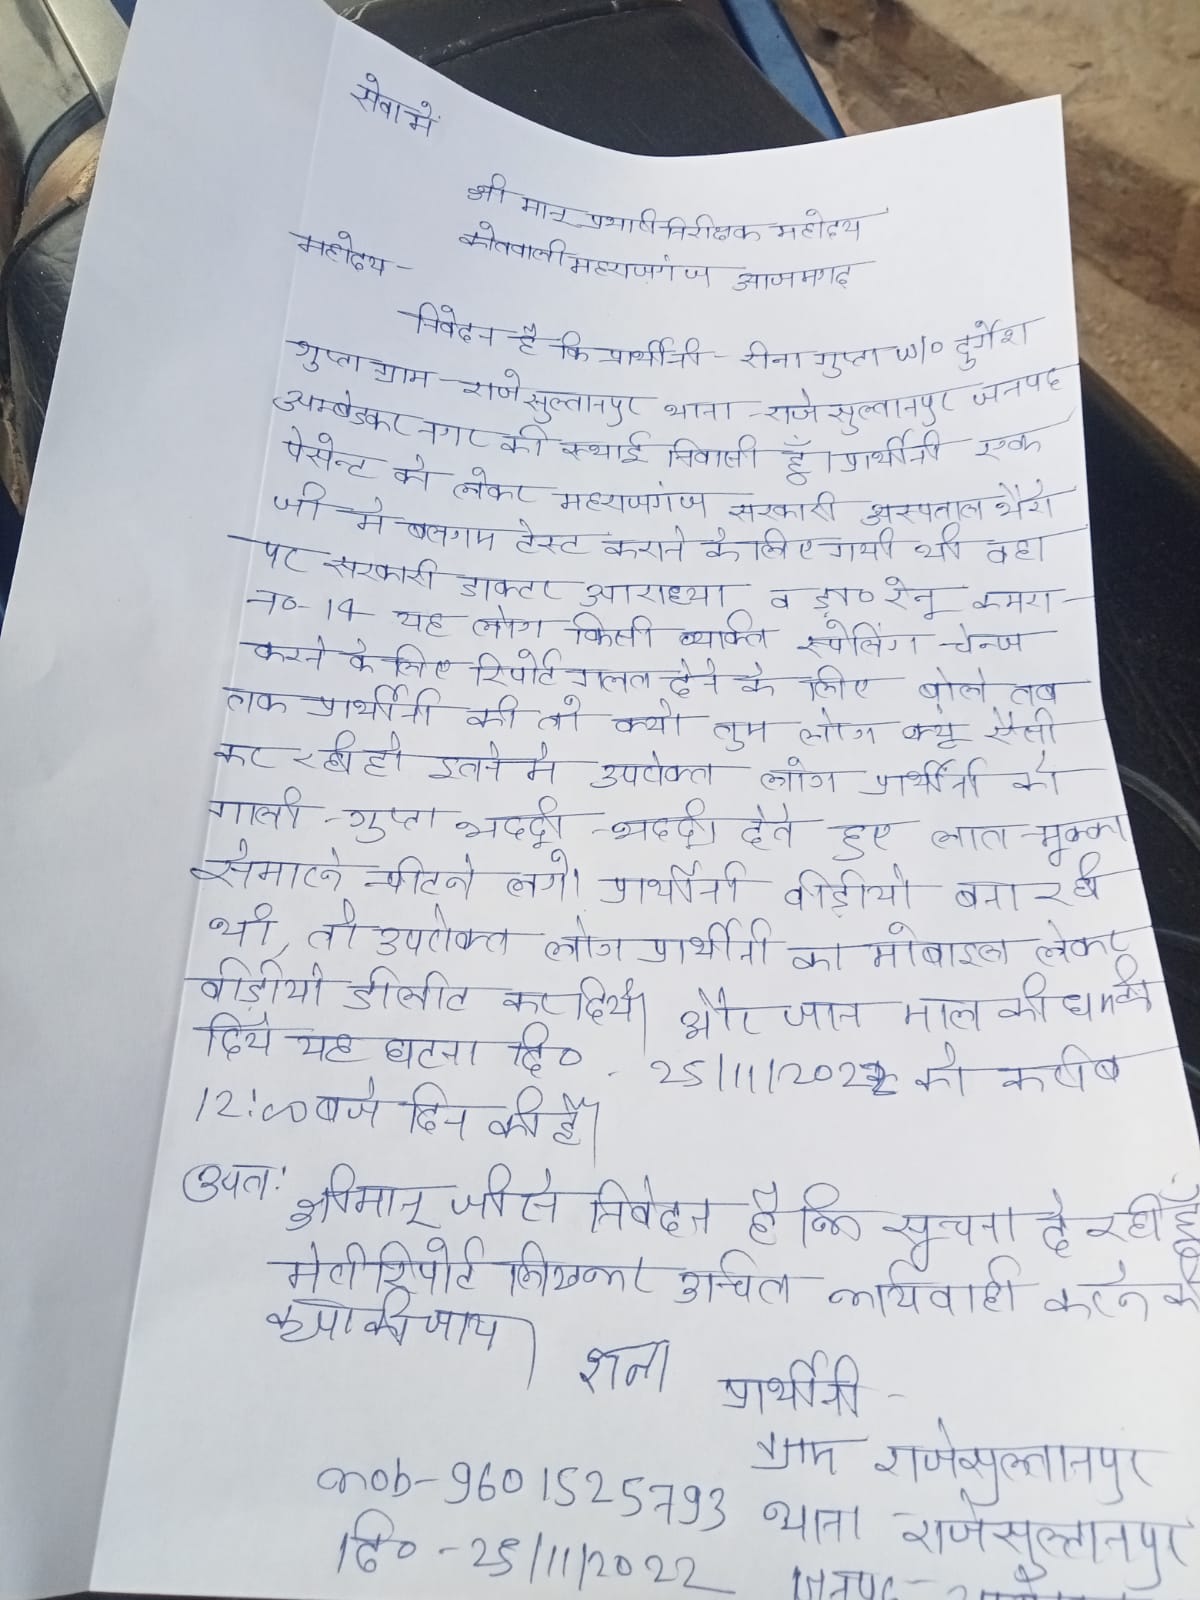 सेवा में
श्री मान् प्रभारी निरीक्षक महोदय
कोतवाली महराजगंज आजमगढ़
महोदय -
निवेदन है कि प्रार्थीनी - रीना गुप्ता w/o दुर्गेश
गुप्ता ग्राम - राजेसुल्तानपुर थाना - राजेसुल्तानपुर जनपद
अम्बेडकर नगर की स्थाई निवासी हूँ। प्रार्थीनी एक
पेसेन्ट को लेकर महराजगंज सरकारी अस्पताल भैरो
जी मे बलगम टेस्ट कराने के लिए गयी थी वहा
पर सरकारी डाक्टर आराध्या व डा० रेनू कमरा -
न०- 14 यह लोग किसी व्यक्ति स्पेलिंग चेन्ज
करने के लिए रिपोर्ट गलत देने के लिए बोले तब
तक प्रार्थीनी की तो क्यो तुम लोग क्यू ऐसी
कर रही हो इतने मे उपरोक्त लोग प्रार्थीनी को
गाली - गुप्ता भददी - भददी देते हुए लात - मुक्का
से मारने पीटने लगे। प्रार्थीनी वीडीयो बना रही
थी, तो उपरोक्त लोग प्रार्थीनी का मोबाइल लेकर
वीडीयो डीलीट कर दिये। और जान माल की धमकी
दिये यह घटना दि० - 25/11/2022 को करीब
12:00 बजे दिन की है।
अतः श्रीमान् जी से निवेदन है कि सूचना दे रही हूँ
मेरी रिपोर्ट लिखकर उचित कार्यवाही करने की
कृपा की जाय।
प्रार्थीनी -
ग्राम राजेसुल्तानपुर
mob- 9601525793 थाना राजेसुल्तानपुर
दि० - 25/11/2022 जनपद -